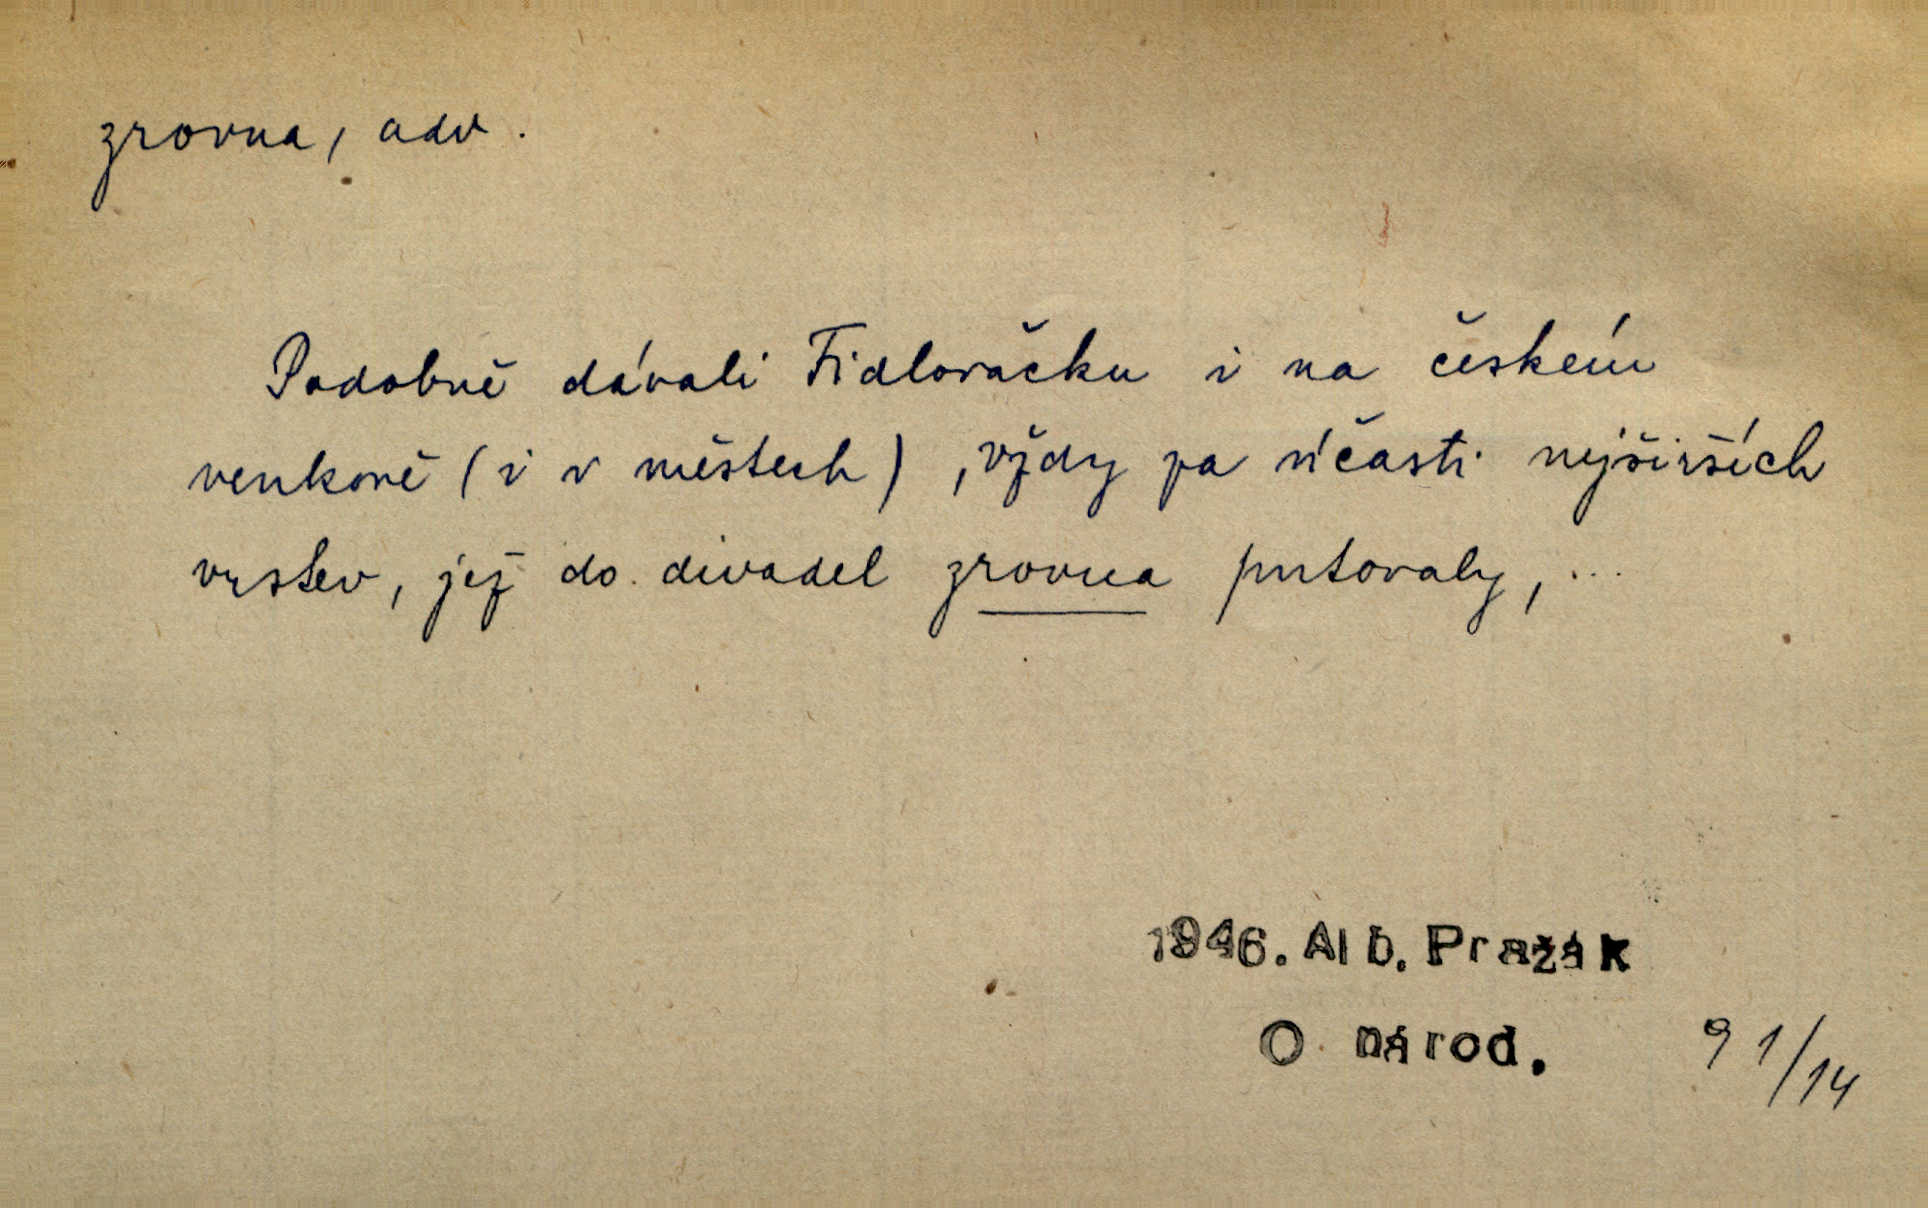 zrovna, adv.
Podobně dávali Fidlovačku i na českém
venkově (i v městech), vždy za účasti nejširších
vrstev, jež do divadel zrovna putovaly, ...
1946. Alb. Pražák
O národ.
91/14